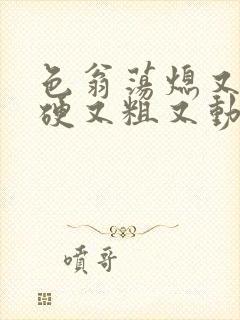 色翁荡熄又
硬又粗又動
喷哥